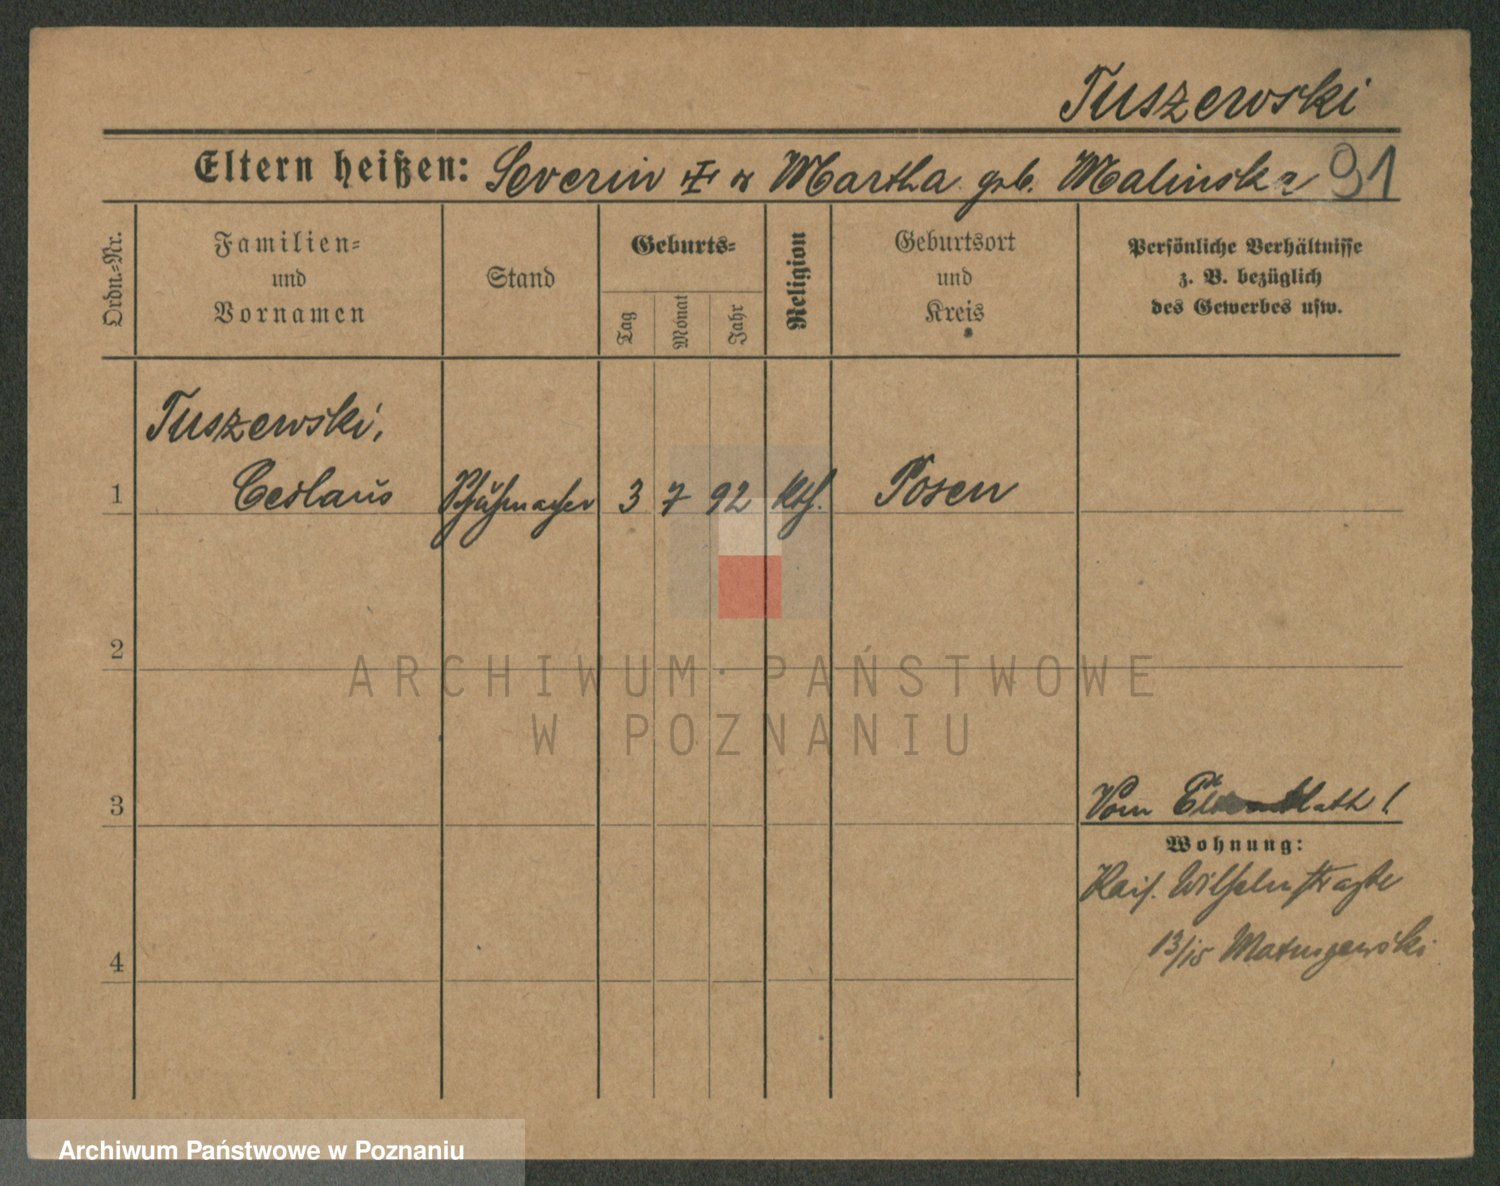 Tuszewski
Eltern heißen: Severin & Martha geb. Malinska 91
Ordn.-Nr.
Familien-
und
Vornamen
Stand
Geburts-
Tag
Monat
Jahr
Religion
Geburtsort
und
Kreis
Persönliche Verhältnisse
z. B. bezüglich
des Gewerbes usw.
Tuszewski,
1 Ceslaus Schuhmacher 3 7 92 kth. Posen
2
ARCHIWUM PAŃSTWOWE
W POZNANIU
3
Vom
Wohnung:
Kais. Wilhelmstraße
13/15 Matuszewski
4
Archiwum Państwowe w Poznaniu